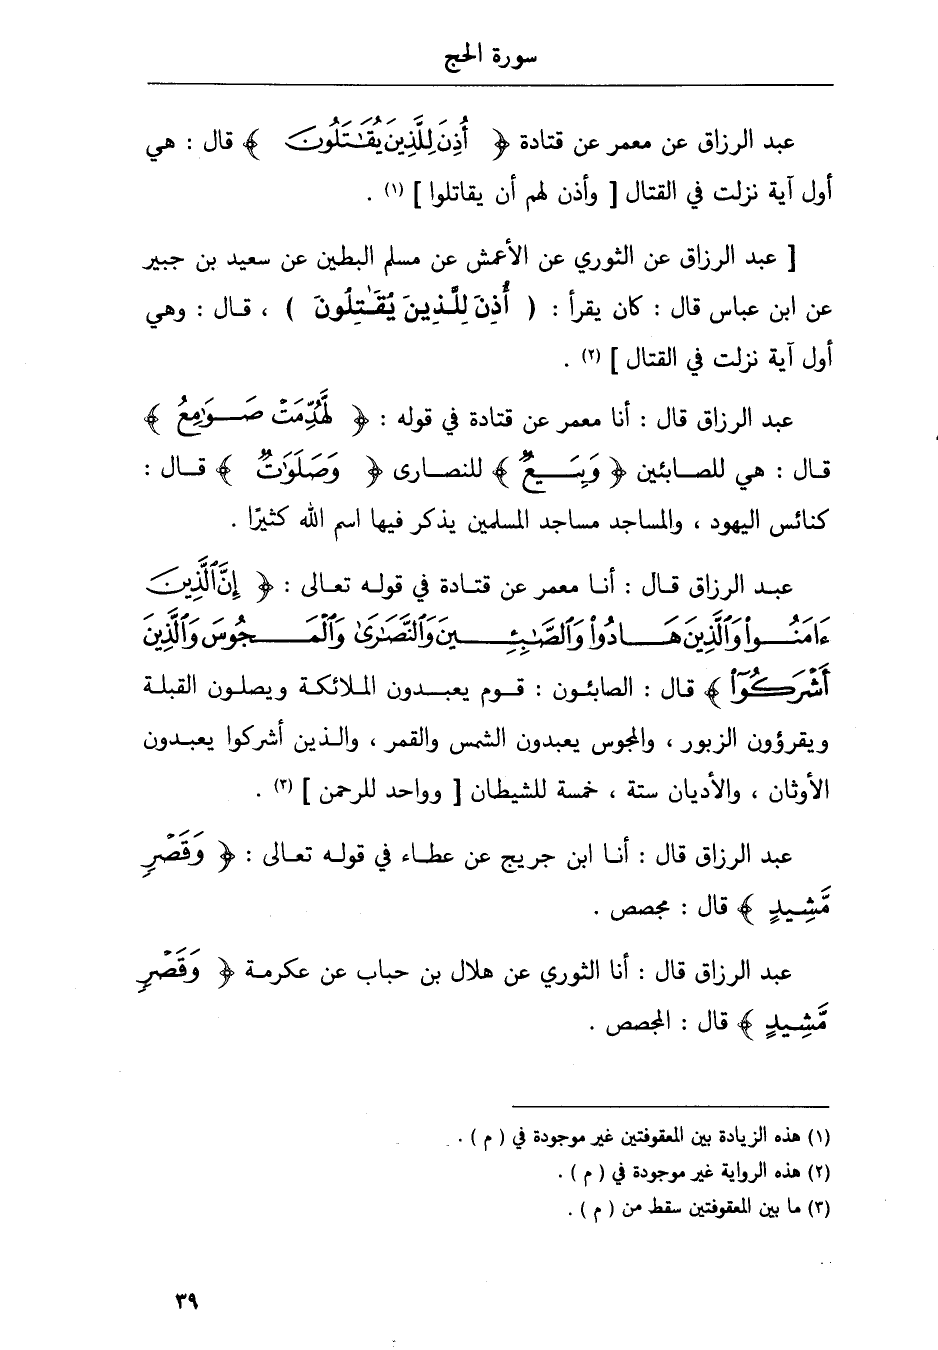 سورة الحج
عبد الرزاق عن معمر عن قتادة ﴿ أُذِنَ لِلَّذِينَ يُقَٰتَلُونَ ﴾ قال : هي
أول آية نزلت في القتال [ وأذن لهم أن يقاتلوا ] (١) .
[ عبد الرزاق عن الثوري عن الأعمش عن مسلم البطين عن سعيد بن جبير
عن ابن عباس قال : كان يقرأ : ( أُذِنَ لِلَّذِينَ يُقَٰتِلُونَ ) ، قال : وهي
أول آية نزلت في القتال ] (٢) .
عبد الرزاق قال : أنا معمر عن قتادة في قوله : ﴿ لَّهُدِّمَتْ صَوَٰمِعُ ﴾
قال : هي للصابئين ﴿ وَبِيَعٌ ﴾ للنصارى ﴿ وَصَلَوَٰتٌ ﴾ قال :
كنائس اليهود ، والمساجد مساجد المسلمين يذكر فيها اسم الله كثيرًا .
عبد الرزاق قال : أنا معمر عن قتادة في قوله تعالى : ﴿ إِنَّ ٱلَّذِينَ
ءَامَنُوا۟ وَٱلَّذِينَ هَادُوا۟ وَٱلصَّٰبِـِٔينَ وَٱلنَّصَٰرَىٰ وَٱلْمَجُوسَ وَٱلَّذِينَ
أَشْرَكُوٓا۟ ﴾ قال : الصابئون : قوم يعبدون الملائكة ويصلون القبلة
ويقرؤون الزبور ، والمجوس يعبدون الشمس والقمر ، والذين أشركوا يعبدون
الأوثان ، والأديان ستة ، خمسة للشيطان [ وواحد للرحمن ] (٣) .
عبد الرزاق قال : أنا ابن جريج عن عطاء في قوله تعالى : ﴿ وَقَصْرٍ
مَّشِيدٍ ﴾ قال : مجصص .
عبد الرزاق قال : أنا الثوري عن هلال بن حباب عن عكرمة ﴿ وَقَصْرٍ
مَّشِيدٍ ﴾ قال : المجصص .
(١) هذه الزيادة بين المعقوفتين غير موجودة في ( م ) .
(٢) هذه الرواية غير موجودة في ( م ) .
(٣) ما بين المعقوفتين سقط من ( م ) .
٣٩